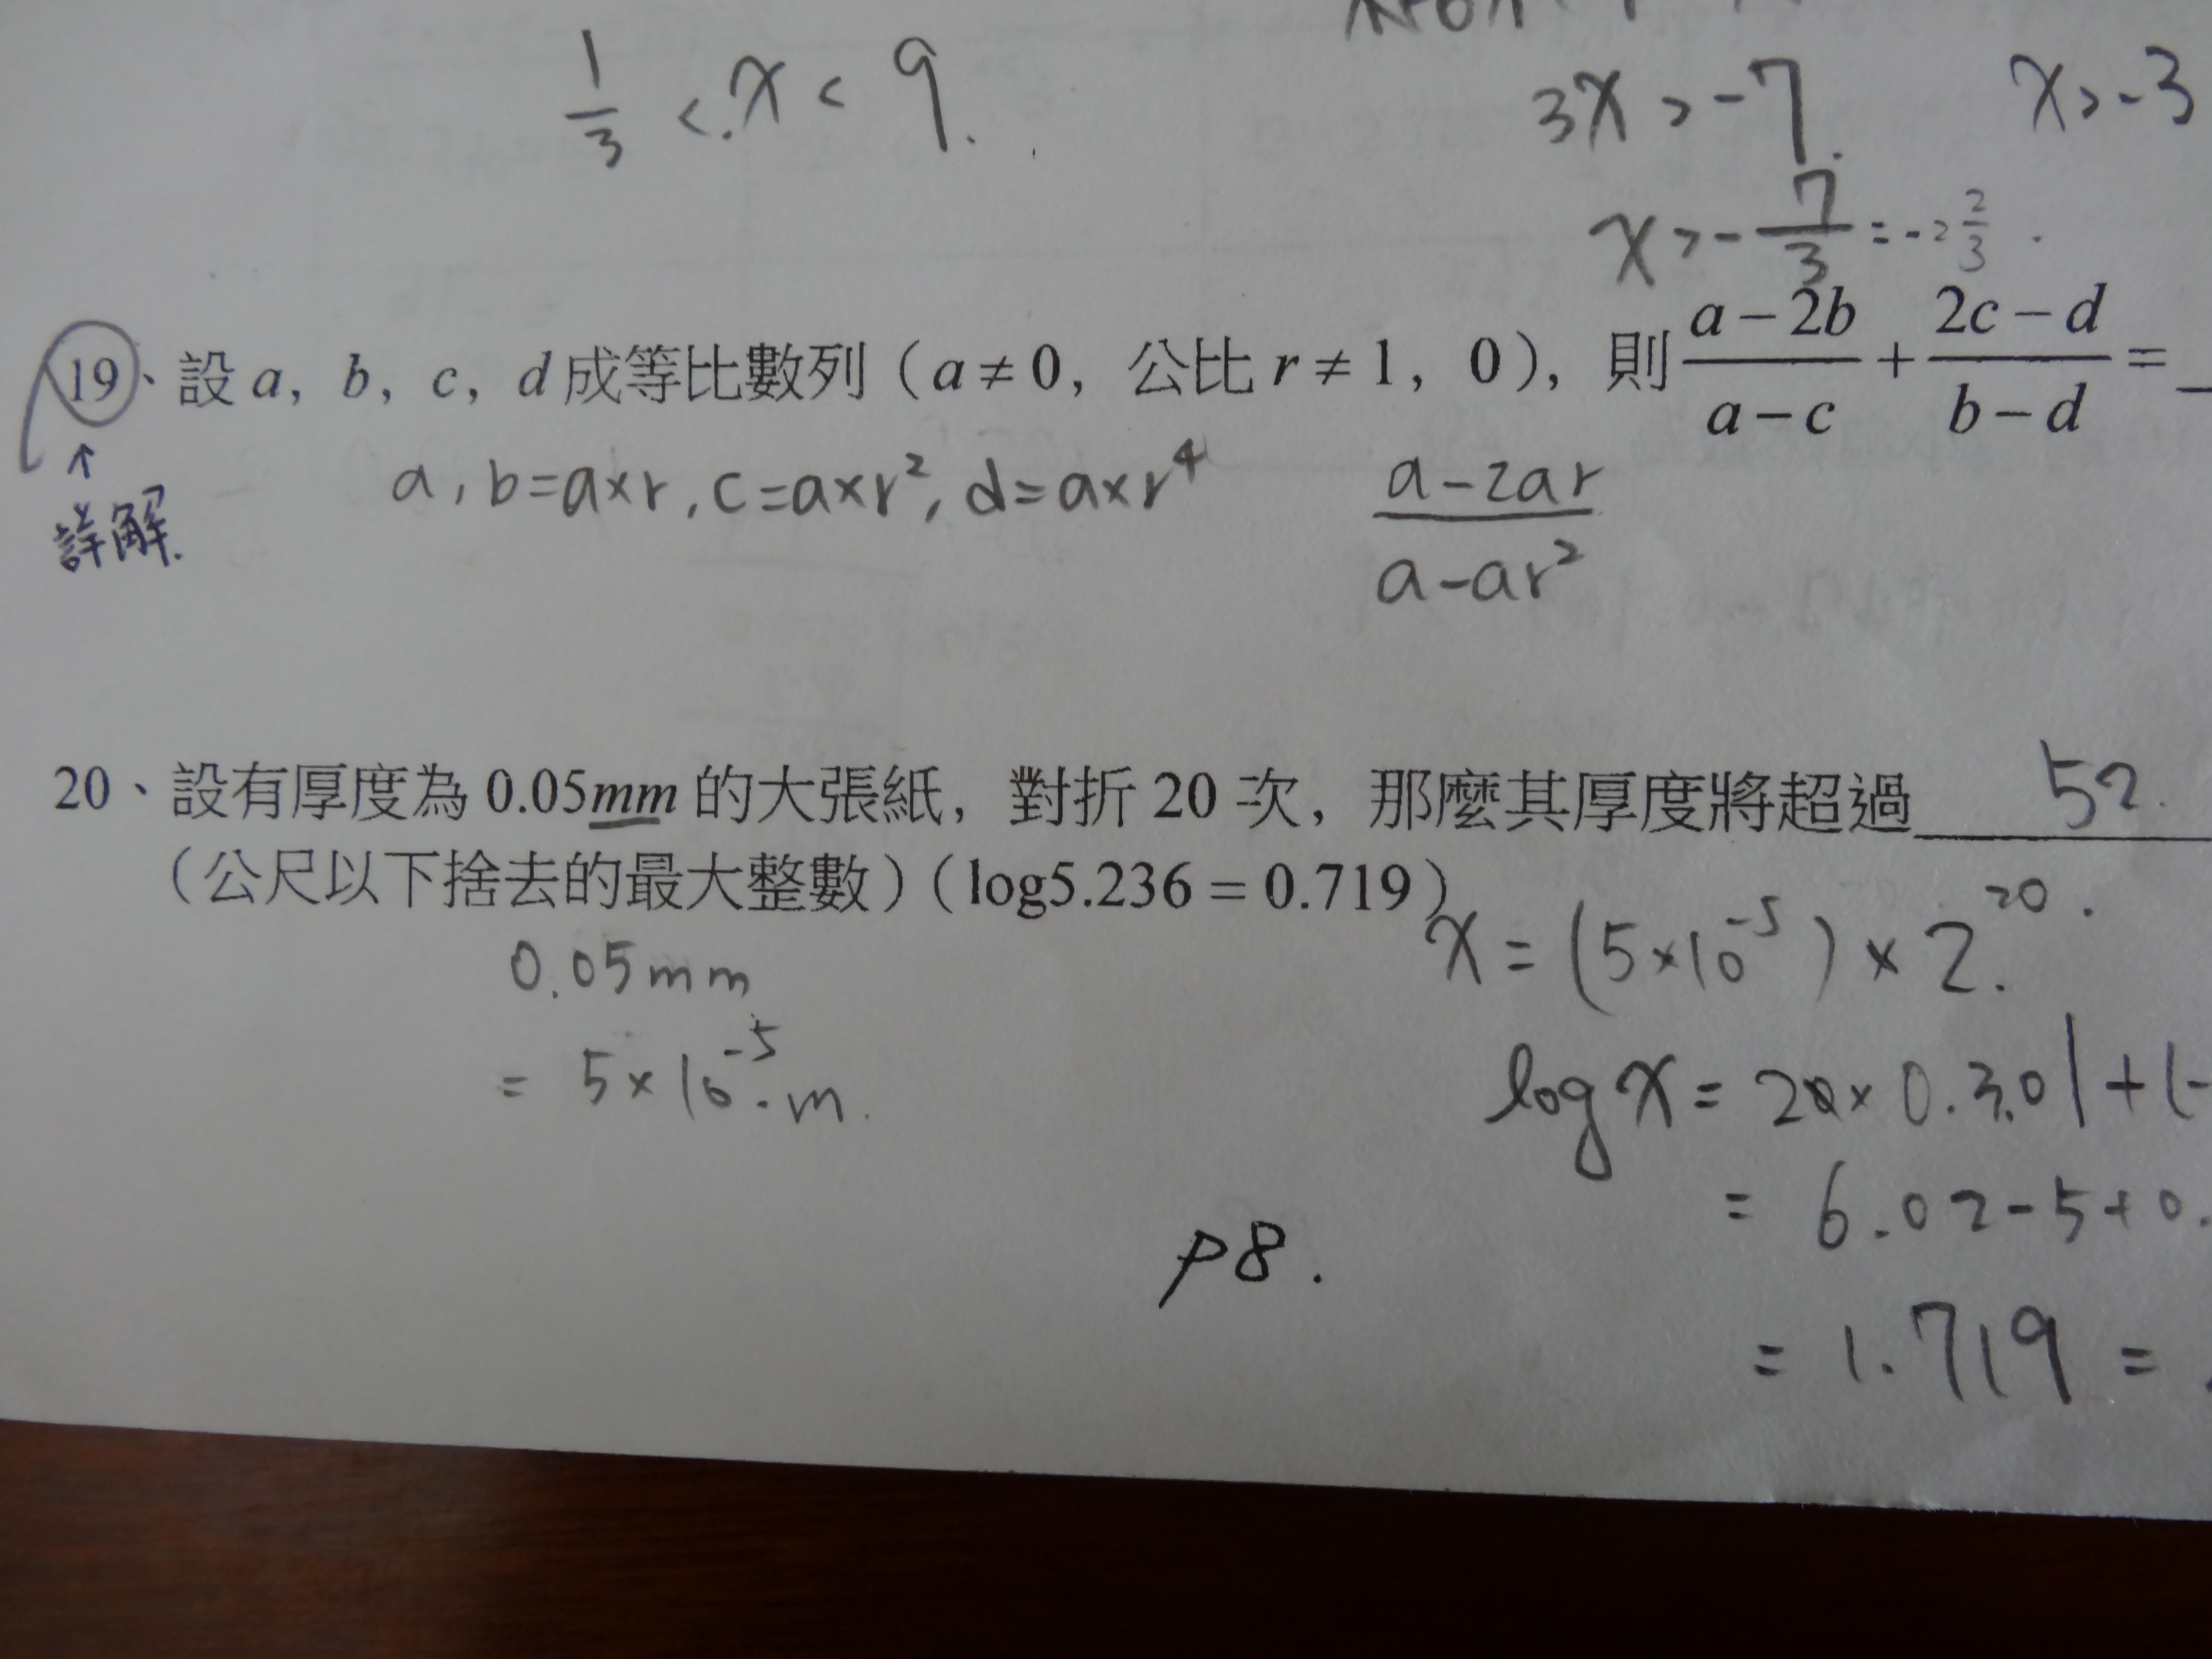 1/3 < x < 9.
3x > -7. x > -3
x > -7/3 = -2 2/3.
19、設 a, b, c, d 成等比數列（a ≠ 0, 公比 r ≠ 1, 0），則 (a-2b)/(a-c) + (2c-d)/(b-d) =
↑
詳解.
a, b=a×r, c=a×r², d=a×r⁴ (a-2ar)/(a-ar²)
20、設有厚度為 0.05mm 的大張紙，對折 20 次，那麼其厚度將超過 52.
（公尺以下捨去的最大整數）（log5.236 = 0.719）
0.05mm
= 5×10⁻⁵ m.
x = (5×10⁻⁵) × 2²⁰.
log x = 20 × 0.301 + (-
= 6.02 - 5 + 0.
= 1.719 =
p8.